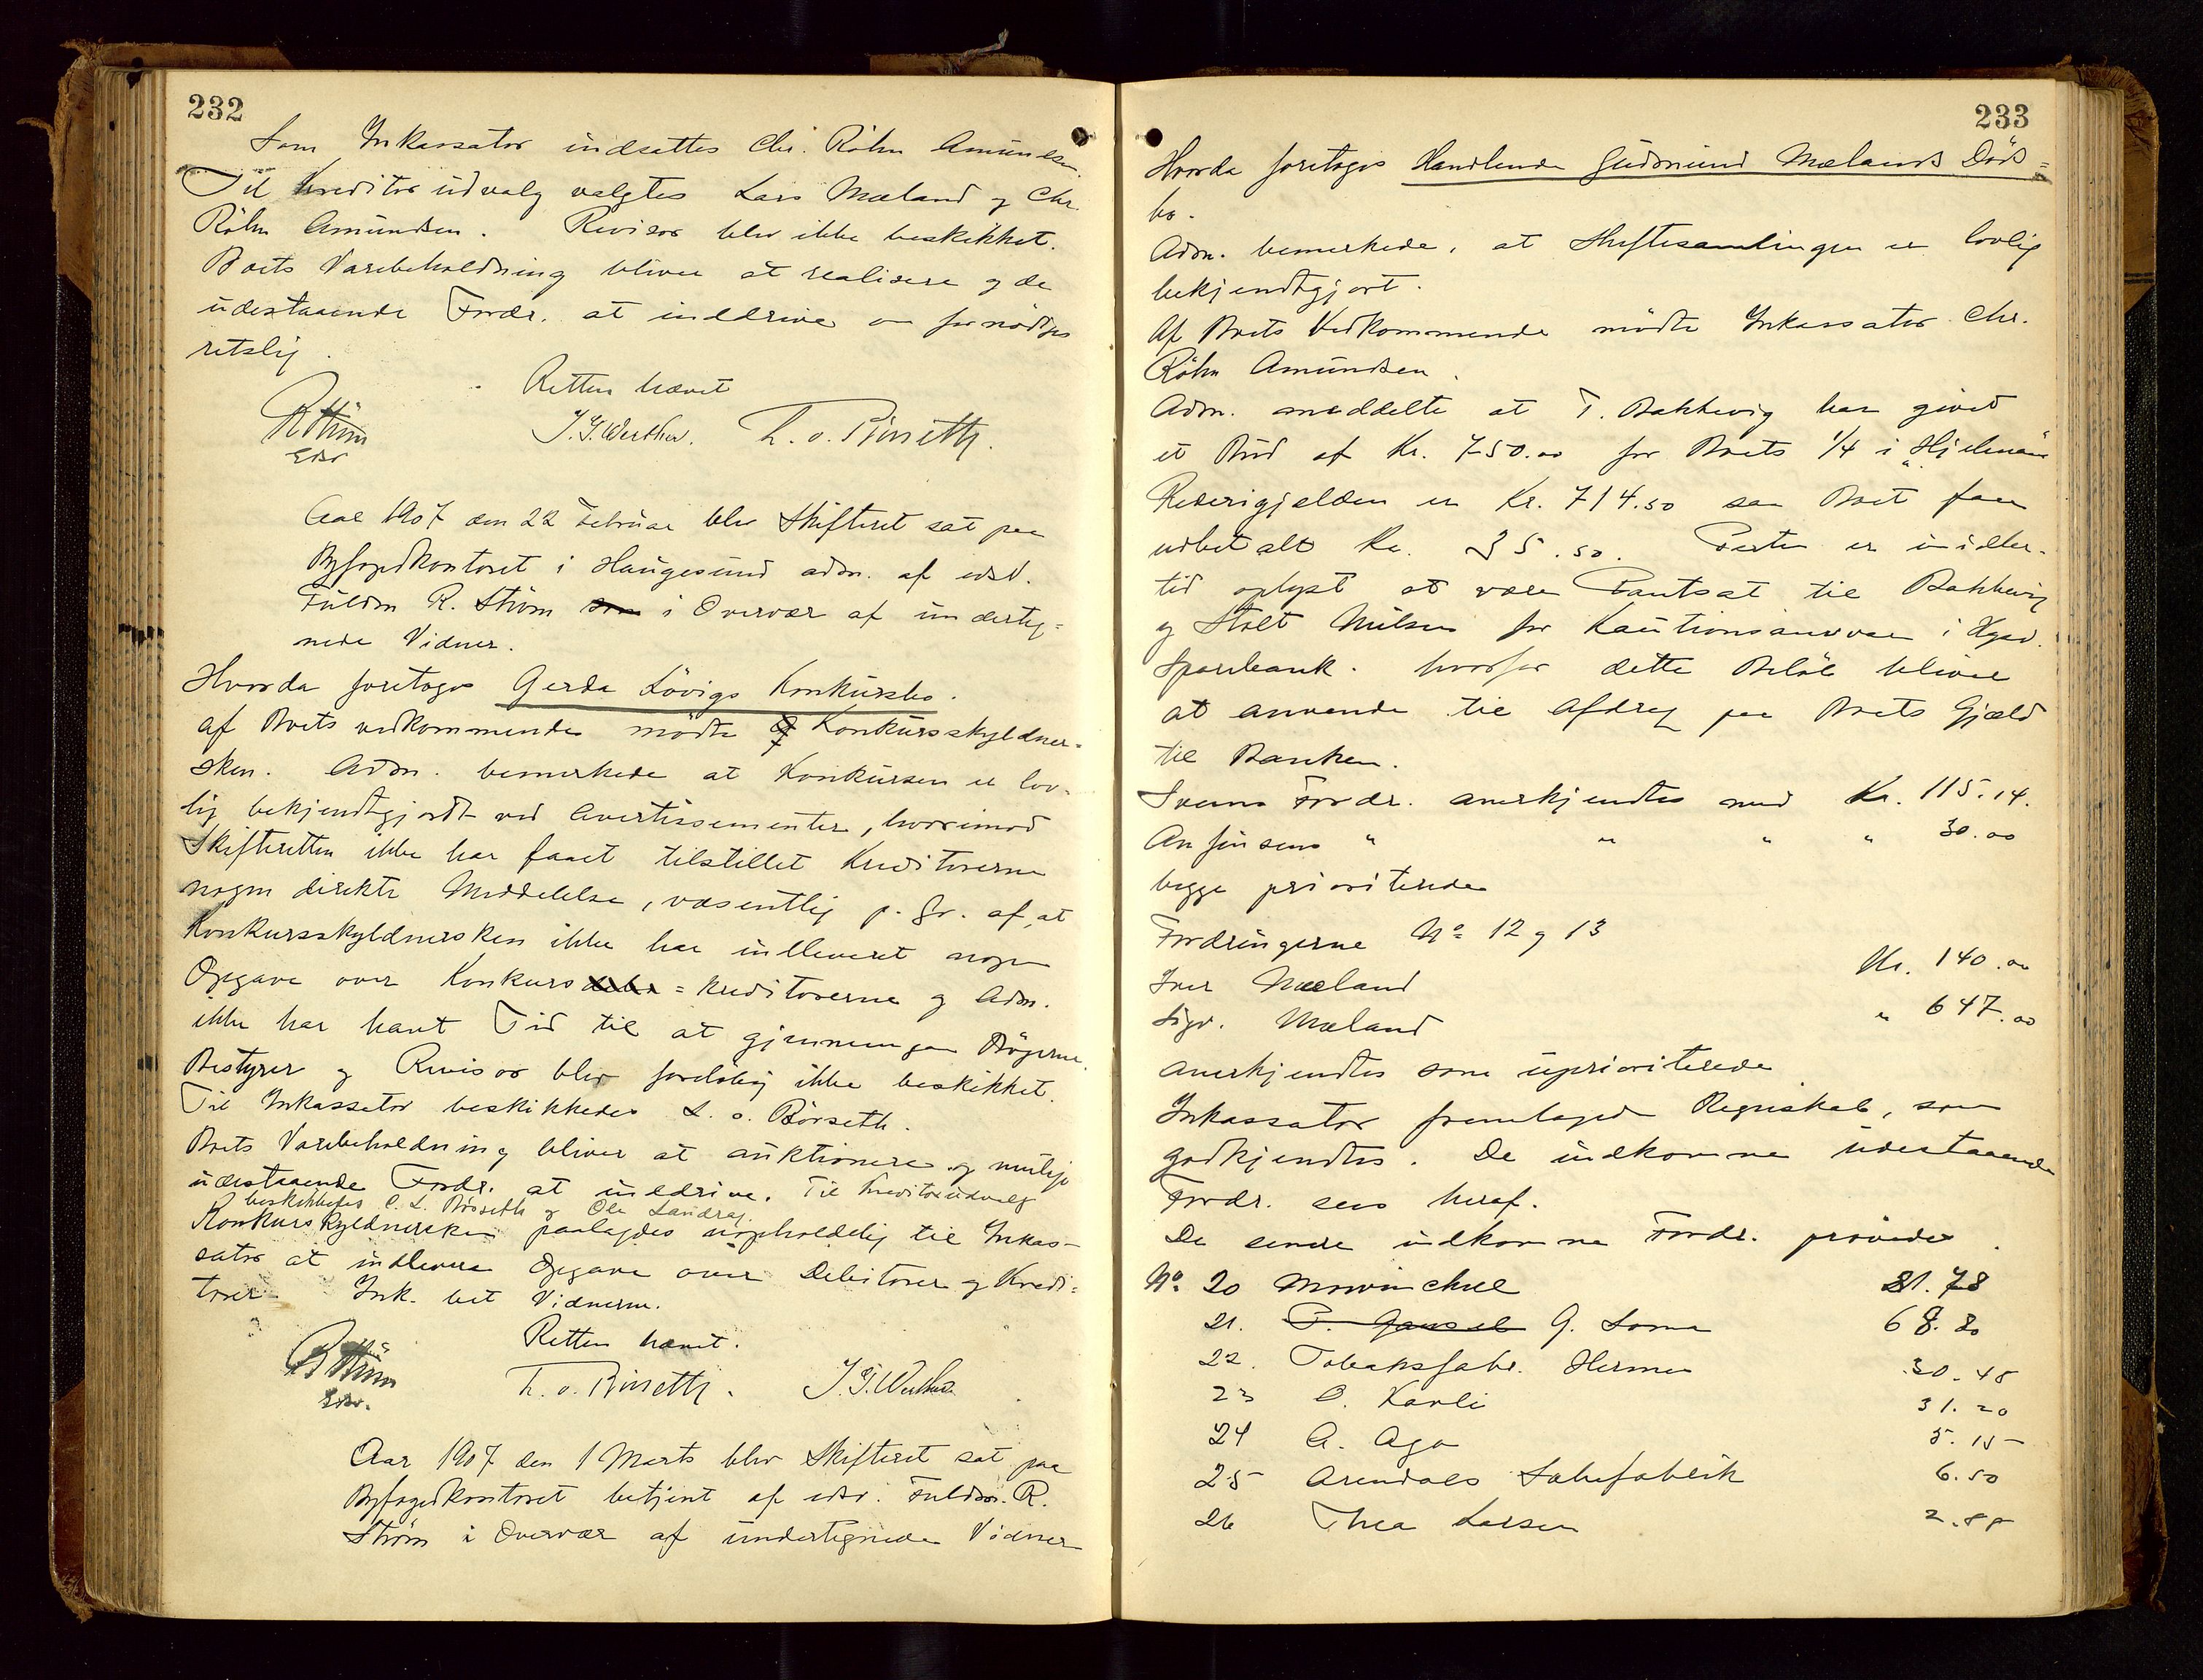 232
Som Inkassator indsattes Chr. Röhn Amundsen.
Til Kreditorudvalg valgtes Lars Mæland og Chr.
Röhn Amundsen. Revisor blev ikke beskikket.
Boets Varebeholdning bliver at realisere og de
udestaaende Fordr. at inddrive om fornödiges
retslig.
Retten hævet
RStröm
Edsv
J.G. Werther. L. o. Börseth.
Aar 1907 den 22 Februar blev Skifteret sat paa
Byfogedkontoret i Haugesund adm. af edsv.
Fuldm R. Ström i Overvær af underteg=
nede Vidner.
Hvorda foretoges Gerda Lövigs Konkursbo.
af Boets vedkommende mödte Konkursskyldner-
sken. Adm. bemerkede at Konkursen er lov-
lig bekjendtgjordt ved Avertissementer, hvorimod
Skifteretten ikke har faaet tilstillet Kreditorerne
nogen direkte Meddelelse, væsentlig p. Gr. af, at
Konkursskyldnersken ikke har indleveret nogen
Opgave over Konkurs = kreditorerne og Adm.
ikke har havt Tid til at gjennemgaa Bögerne.
Bestyrer og Revisor blev forelöbig ikke beskikket.
Til Inkassator beskikkedes L. o. Börseth.
Boets Varebeholdning bliver at auktionere og mulige
udestaaende Fordr. at inddrive. Til Kreditorudvalg
beskikkedes C. L. Börseth og Ole Landrag.
Konkursskyldnersken paalagdes uopholdelig til Inkas-
sator at indlevere Opgave over Debitorer og Kredi=
torer. Ink. bet Vidnerne.
Retten hævet.
RStröm
Edsv.
L. o. Börseth. J.G. Werther
Aar 1907 den 1 Marts blev Skifteret sat paa
Byfogedkontoret betjent af edsv. Fuldm. R.
Ström i Overvær af undertegnede Vidner
233
Hvorda foretoges Handlende Gudmund Mælands Döds=
bo.
Adm. bemerkede, at Skiftesamlingen er lovlig
bekjendtgjort.
Af Boets Vedkommende mödte Inkassator Chr.
Röhn Amundsen.
Adm. meddelte at T. Bakkevig har givet
et Bud af Kr. 750.00 for Boets 1/4 i "Hjelmaas"
Rederigjælden er Kr. 714.50 saa Boet faar
udbetalt Kr. 35.50. Parten er imidler-
tid oplyst at være Pantsat til Bakkevig
og Stolt Nilsen for Kautionsansvar i Hgsd.
Sparebank. hvorfor dette Belöb bliver
at anvende til Afdrag paa Boets Gjæld
til Banken.
Svens Fordr. anerkjendtes med Kr. 115.14.
Anfinsens " " " " 30.00
begge prioriterede
Fordringerne No 12 og 13
Iver Mæland Kr. 140.00
Sigv. Mæland " 647.00
anerkjendtes som uprioriterede
Inkassator fremlagde Regnskab, som
godkjendtes. De indkomne udestaaende
Fordr. sees heraf.
De senere indkomne Fordr. prövedes.
No 20 Mowinckel 21.78
21. P. Gausel G. Soma 68.80
22. Tobaksfabr. Hermes 30.45
23 O. Kavli 31.20
24 A. Aga 5.15
25 Arendals Sæbefabrik 6.50
26 Thea Larsen 2.88